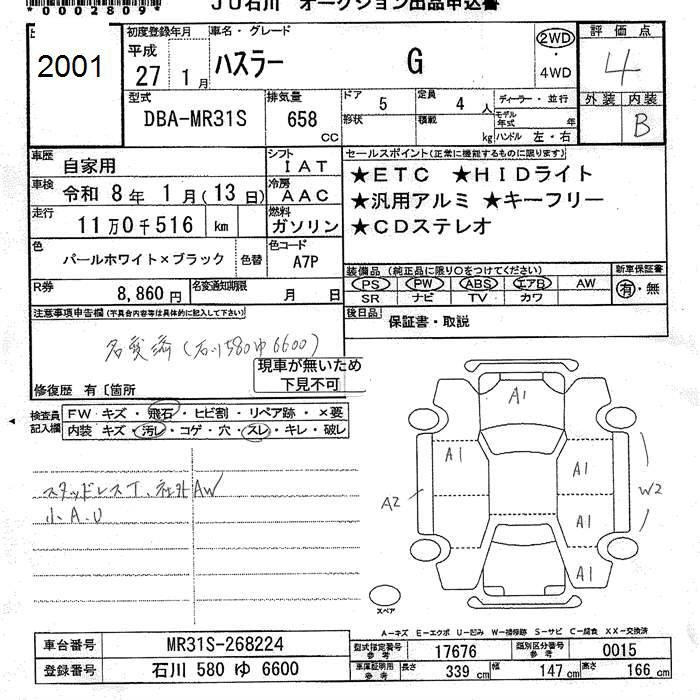 *0002809*
ＪＵ石川 オークション出品申込書
2001
初度登録年月
平成
27 1月
車名・グレード
ハスラー G
2WD
・
4WD
評価点
4
外装 内装
B
型式
DBA-MR31S
排気量
658
CC
ドア
5
定員
4 人
形状
積載
kg
ディーラー・並行
モデル年式 年
ハンドル 左・右
車歴
自家用
シフト
IAT
車検
令和 8年 1月(13日)
冷房
AAC
走行
11万0千516 km
燃料
ガソリン
色
パールホワイト×ブラック
色替
色コード
A7P
R券
8,860円
名変通知期限
月 日
セールスポイント(正常に機能するものに限ります)
★ETC ★HIDライト
★汎用アルミ ★キーフリー
★CDステレオ
装備品(純正品に限り○をつけてください)
PS PW ABS エアB AW
SR ナビ TV カワ
新車保証書
有・無
後日品
保証書・取説
注意事項申告欄(不具合内容等は具体的に記入して下さい)
名変済(石川580ゆ6600)
現車が無いため
下見不可
修復歴 有〔箇所
検査員
記入欄
FW キズ・飛石・ヒビ割・リペア跡・×要
内装 キズ・汚レ・コゲ・穴・スレ・キレ・破レ
スタッドレスT、社外AW
小A.U
A1
A1
A1
A2
W2
A1
A1
スペア
A―キズ E―エクボ U―凹み W―補修跡 S―サビ C―腐食 XX―交換済
車台番号
MR31S-268224
登録番号
石川 580 ゆ 6600
型式指定番号
参考
17676
類別区分番号
参考
0015
車庫証明用
参考
長さ
339 cm
幅
147 cm
高さ
166 cm